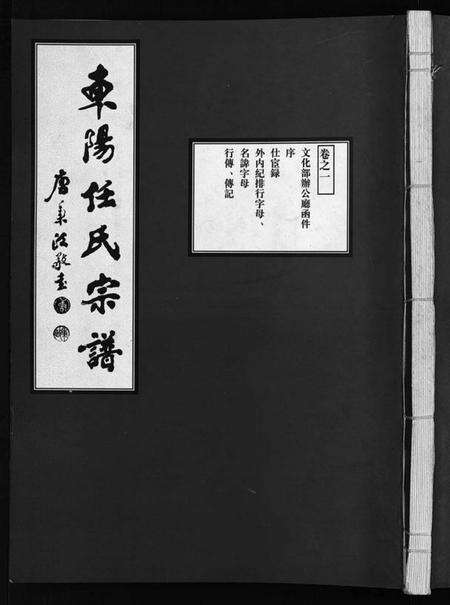 東陽任氏宗譜
卷之一
文化部辦公廳函件
序
仕宦録
外内紀排行字母、
名諱字母
行傳、傳記